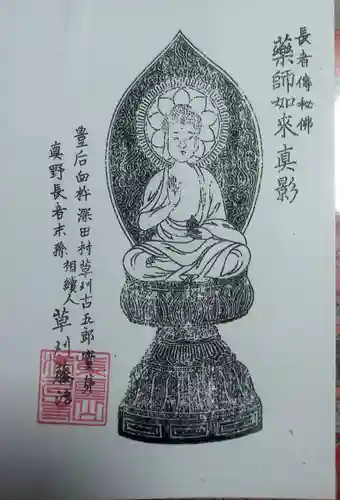 長者傳秘佛
藥師如來真影
豊后臼杵深田村草刈古五郎實身
真野長者末孫相續人草刈